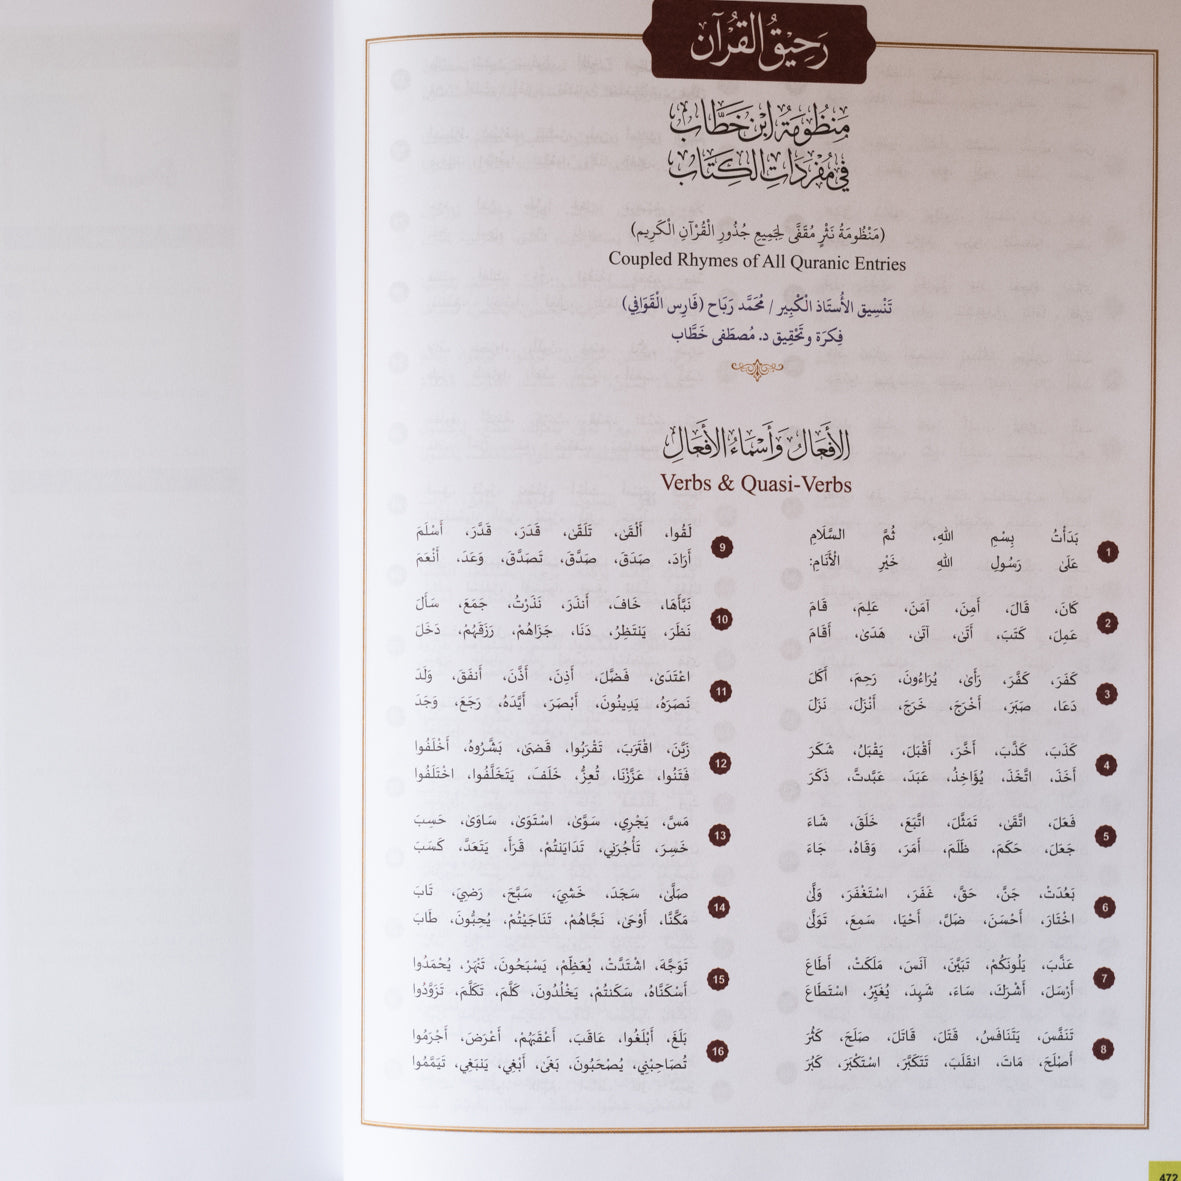 رَحِيقُ الْقُرْآن
مَنْظُومَةُ ابْنِ خَطَّاب
فِي مُفْرَدَاتِ الكِتَاب
(مَنْظُومَةُ نَثْرٍ مُقَفَّى لِجَمِيعِ جُذُورِ الْقُرْآنِ الْكَرِيم)
Coupled Rhymes of All Quranic Entries
تَنْسِيق الأُستَاذ الْكَبِير / مُحَمَّد رَبَاح (فَارِس الْقَوَافِي)
فِكرَة وتَحْقِيق د. مُصطَفى خَطَّاب
الأَفعَالُ وَأَسْمَاءُ الأَفْعَالِ
Verbs & Quasi-Verbs
1
بَدَأْتُ بِسْمِ اللهِ، ثُمَّ السَّلَامِ
عَلَىٰ رَسُولِ اللهِ خَيْرِ الْأَنَامِ:
2
كَانَ، قَالَ، أَمِنَ، آمَنَ، عَلِمَ، قَامَ
عَمِلَ، كَتَبَ، أَتَى، آتَى، هَدَىٰ، أَقَامَ
3
كَفَرَ، كَفَّرَ، رَأَىٰ، يُرَاءُونَ، رَحِمَ، أَكَلَ
دَعَا، صَبَرَ، أَخْرَجَ، خَرَجَ، أَنْزَلَ، نَزَلَ
4
كَذَبَ، كَذَّبَ، أَخَّرَ، أَقْبَلَ، يَقْبَلُ، شَكَرَ
أَخَذَ، اتَّخَذَ، يُؤَاخِذُ، عَبَدَ، عَبَّدتَّ، ذَكَرَ
5
فَعَلَ، اتَّقَىٰ، تَمَثَّلَ، اتَّبَعَ، خَلَقَ، شَاءَ
جَعَلَ، حَكَمَ، ظَلَمَ، أَمَرَ، وَقَاهُ، جَاءَ
6
بَعُدَتْ، جَنَّ، حَقَّ، غَفَرَ، اسْتَغْفَرَ، وَلَّى
اخْتَارَ، أَحْسَنَ، ضَلَّ، أَحْيَا، سَمِعَ، تَوَلَّى
7
عَذَّبَ، يَلُونَكُمْ، تَبَيَّنَ، آنَسَ، مَلَكَتْ، أَطَاعَ
أَرْسَلَ، أَشْرَكَ، سَاءَ، شَهِدَ، يُغَيِّرُ، اسْتَطَاعَ
8
تَنَفَّسَ، يَتَنَافَسُ، قَتَلَ، قَاتَلَ، صَلَحَ، كَثُرَ
أَصْلَحَ، مَاتَ، انقَلَبَ، تَتَكَبَّرَ، اسْتَكْبَرَ، كَبُرَ
9
لَقُوا، أَلْقَىٰ، تَلَقَّىٰ، قَدَرَ، قَدَّرَ، أَسْلَمَ
أَرَادَ، صَدَقَ، صَدَّقَ، تَصَدَّقَ، وَعَدَ، أَنْعَمَ
10
نَبَّأَهَا، خَافَ، أَنذَرَ، نَذَرْتُ، جَمَعَ، سَأَلَ
نَظَرَ، يَنتَظِرُ، دَنَا، جَزَاهُمْ، رَزَقَهُمْ، دَخَلَ
11
اعْتَدَىٰ، فَضَّلَ، أَذِنَ، أَذَّنَ، أَنفَقَ، وَلَدَ
نَصَرَهُ، يَدِينُونَ، أَبْصَرَ، أَيَّدَهُ، رَجَعَ، وَجَدَ
12
زَيَّنَ، اقْتَرَبَ، تَقْرَبُوا، قَضَىٰ، بَشَّرُوهُ، أَخْلَفُوا
فَتَنُوا، عَزَّزْنَا، تُعِزُّ، خَلَفَ، يَتَخَلَّفُوا، اخْتَلَفُوا
13
مَسَّ، يَجْرِي، سَوَّىٰ، اسْتَوَىٰ، سَاوَىٰ، حَسِبَ
خَسِرَ، تَأْجُرَنِي، تَدَايَنتُمْ، قَرَأَ، يَتَعَدَّ، كَسَبَ
14
صَلَّىٰ، سَجَدَ، خَشِيَ، سَبَّحَ، رَضِيَ، تَابَ
مَكَّنَّا، أَوْحَىٰ، نَجَّاهُمْ، تَنَاجَيْتُمْ، يُحِبُّونَ، طَابَ
15
تَوَجَّهَ، اشْتَدَّتْ، يُعَظِّمْ، يَسْبَحُونَ، تَنْهَرْ، يُحْمَدُوا
أَسْكَنَّاهُ، سَكَنتُمْ، يَخْلُدُونَ، كَلَّمَ، تَكَلَّمَ، تَزَوَّدُوا
16
بَلَغَ، أَبْلَغُوا، عَاقَبَ، أَعْقَبَهُمْ، أَعْرَضَ، أَجْرَمُوا
تُصَاحِبْنِي، يُصْحَبُونَ، بَغَىٰ، أَبْغِي، يَنبَغِي، تَيَمَّمُوا
472